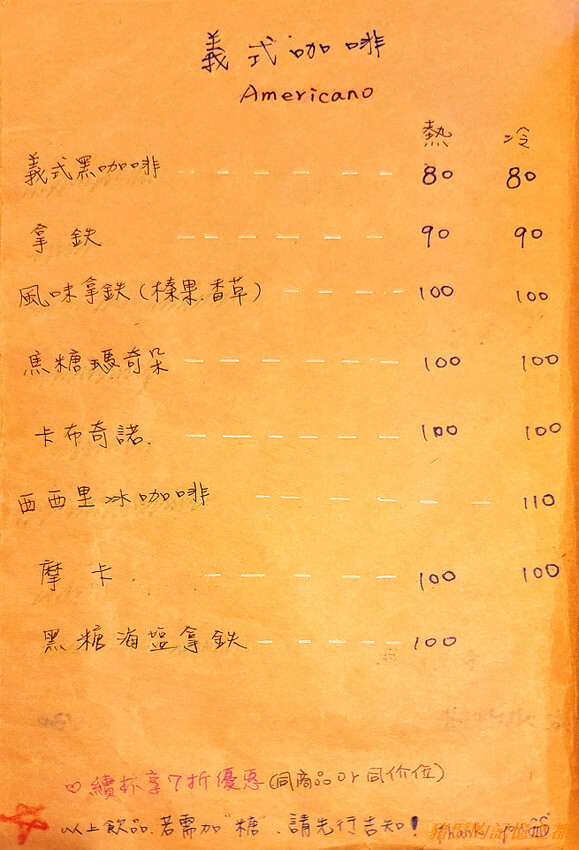 義式咖啡
Americano
熱 冷
義式黑咖啡 80 80
拿鉄 90 90
風味拿鉄(榛果.香草) 100 100
焦糖瑪奇朵 100 100
卡布奇諾. 100 100
西西里冰咖啡 110
摩卡 100 100
黑糖海塩拿鉄 100
♡續杯享7折優惠(同商品or同价位)
以上飲品.若需加"糖".請先行告知! Thank